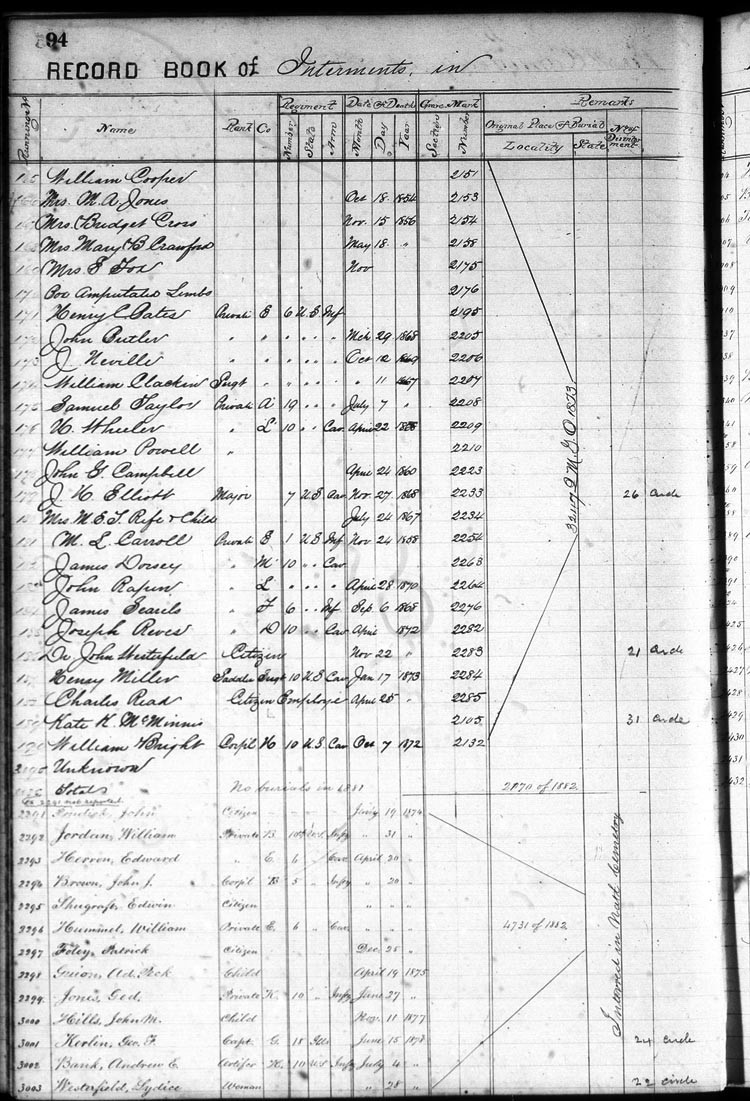 94
RECORD BOOK of Interments, in
Regiment Date of Death Grave Mark Remarks
Name Rank Co Number State Arm Month Day Year Section Number Original Place of Burial No of Disinterment
Locality State
William Cooper 2151
Mrs. M. A. Jones Oct 18 1854 2153
Mrs. Bridget Cross Nov. 15 1856 2154
Mrs Mary B Crawford May 18 " 2158
Mrs E Fox Nov 2175
Box Amputated Limbs 2176
171 Henry C. Bates Private E 6 U S Inf 2195
John Butler " " " " " " Mch 29 1868 2205
J Neville " " " " " " Oct 12 2206
William Clackin Sergt " " " " " " 11 1867 2207
175 Samuel Taylor Private A 19 " " " July 7 " 2208
176 W. Wheeler " L 10 " " Cav April 22 2209
177 William Powell " 2210
John G. Campbell April 24 1860 2223
J. H. Elliott Major 7 U S Cav Nov. 27 1868 2233 26 Circle
Mrs. M. E. T. Rife & Child July 24 1867 2234
M. L. Carroll Private E 1 U S Inf Nov 24 1858 2254
James Dorsey " M 10 " " Cav 2263
John Rapun " L " " " " April 28 1870 2264
James Searils " F 6 " " Inf Sep 6 1868 2276
Joseph Reves " D 10 " " Cav April 1872 2282
Dr John Westerfield Citizen Nov 22 " 2283 21 Circle
Henry Miller Saddle Sergt 10 U S Cav Jan 17 1873 2284
Charles Read Citizen Employe April 25 " 2285
Kate K. McMinnis 2105 31 Circle
William Bright Corpil H 10 U S Cav Oct 7 1872 2132
Unknown
32117 Q M. G. O 1873
Totals No burials in 1881 2170 of 1882
2291 not reported
2291 John Citizen Jan'y 19 1874
2292 Jordan, William Private B. 10 U.S. Inf'y " 31 "
2293 Herron, Edward " E. 6 " Cav April 20 "
2294 Brown, John J. Corp'l B 5 " Inf'y " 20 "
2295 Shugraft, Edwin Citizen " "
2296 Hummel, William Private E. 6 " Cav. " " 4731 of 1882
2297 Foley, Patrick Citizen Dec. 25 "
2298 Guion, Ad. Peck Child April 19 1875
2299 Jones, Ged. Private K. 10 " Inf'y June 27 "
3000 Hills, John M. Child Nov. 11 1877
3001 Kerlin, Geo. F. Capt. G. 18 Ills June 15 1878 24 Circle
3002 Bank, Andrew E. Artifer K. 10 U.S. Inf'y July 4 "
3003 Westerfield, Lydice Woman " 28 " 22 circle
Interred in Nat'l Cemetery